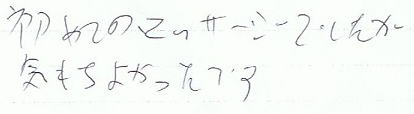 初めてのマッサージでしたが
気もちよかったです